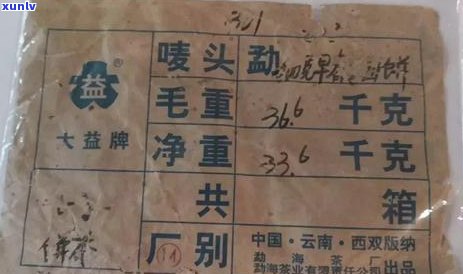 xunlv
.com
321
益
®
大益牌
唛头 勐
毛重 36.6 千克
净重 33.6 千克
共 箱
厂别
中国·云南·西双版纳
勐海茶厂
勐海茶业有限责任公司
出品